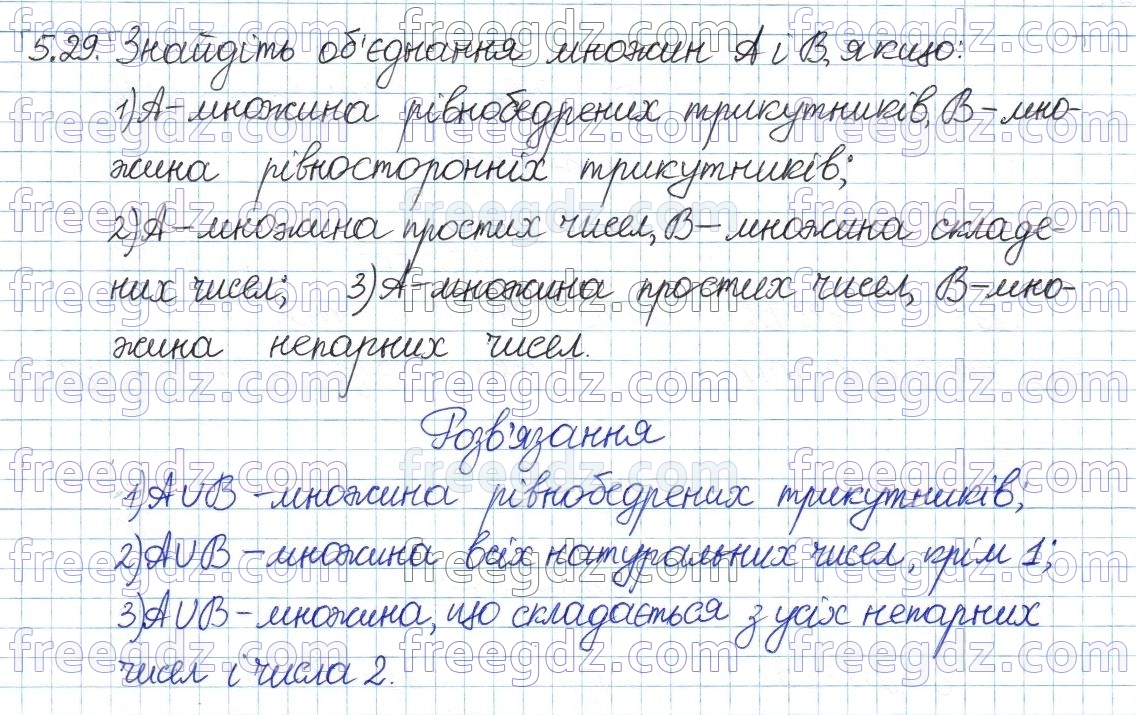 5.29. Знайдіть об'єднання множин А і В, якщо:
1) А – множина рівнобедрених трикутників, В – мно-
жина рівносторонніх трикутників;
2) А – множина простих чисел, В – множина складе-
них чисел; 3) А – множина простих чисел, В – мно-
жина непарних чисел.
Розв'язання
1) A∪B – множина рівнобедрених трикутників;
2) A∪B – множина всіх натуральних чисел, крім 1;
3) A∪B – множина, що складається з усіх непарних
чисел і числа 2.